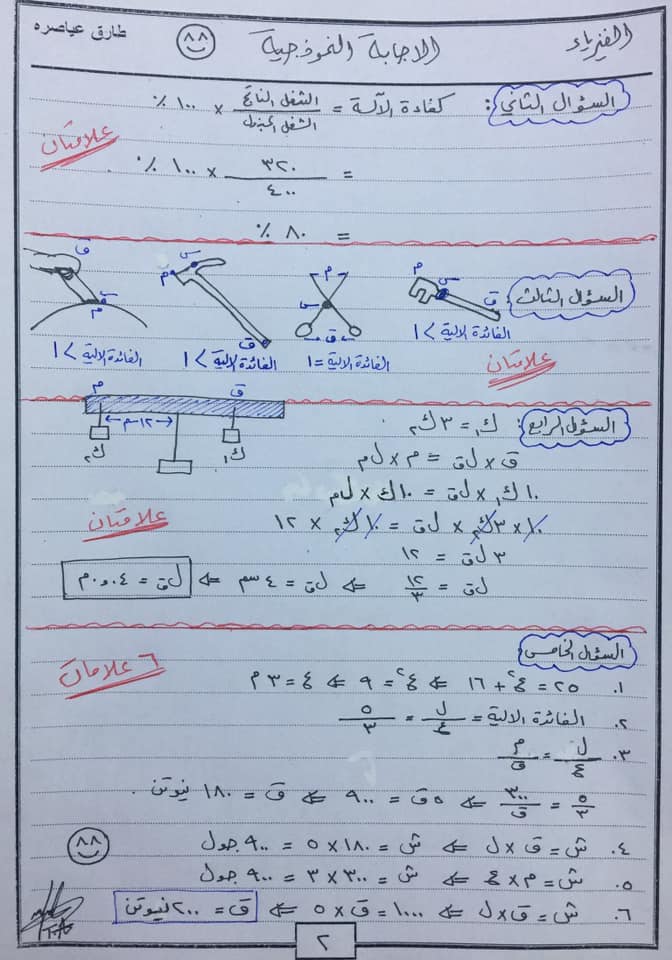 الفيزياء
الاجابة النموذجية
طارق عياصره
السؤال الثاني: كفاءة الآلة = الشغل الناتج / الشغل المبذول × ١٠٠ ٪
علامتان
= ٣٢٠ / ٤٠٠ × ١٠٠ ٪
= ٨٠ ٪
السؤال الثالث:
م س ق
م س ق
س م ق
ق س م
الفائدة الالية > ١
الفائدة الالية = ١
الفائدة الالية > ١
الفائدة الالية > ١
علامتان
السؤال الرابع: ك١ = ٣ ك٢
م ق
١٢ سم
ك٢ ك١
ق × لق = م × لم
١٠ ك١ × لق = ١٠ ك × لم
١٠ × ٣ ك٢ × لق = ١٠ ك٢ × ١٢
علامتان
٣ لق = ١٢
لق = ١٢ / ٣ ⇐ لق = ٤ سم ⇐ لق = ٠,٠٤ م
السؤال الخامس:
٦ علامات
١. ٢٥ = ع² + ١٦ ⇐ ع² = ٩ ⇐ ع = ٣ م
٢. الفائدة الالية = ل / ع = ٥ / ٣
٣. ل / ع = م / ق
٥ / ٣ = ٣٠٠ / ق ⇐ ٥ ق = ٩٠٠ ⇐ ق = ١٨٠ نيوتن.
٤. ش = ق × ل ⇐ ش = ١٨٠ × ٥ = ٩٠٠ جول
٥. ش = م × ع ⇐ ش = ٣٠٠ × ٣ = ٩٠٠ جول
٦. ش = ق × ل ⇐ ١٠٠٠ = ق × ٥ ⇐ ق = ٢٠٠ نيوتن
٢